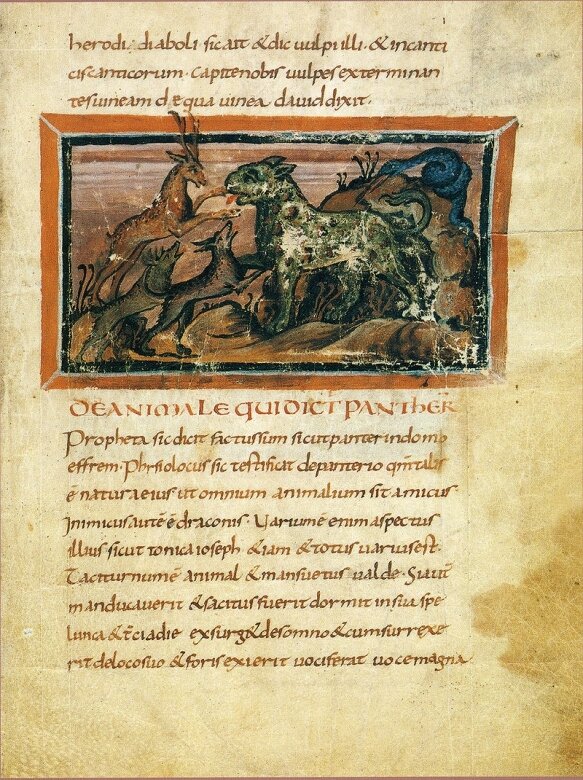 herodi, diaboli sicait & dic uulpi illi · & incanti
ciscanticorum · Capite nobis uulpes exterminan
tes uineam de qua uinea dauid dixit ·
DE ANIMALE QUI DICT PANTHER
Propheta sic dicit factus sum sicut panter in domo
effrem · Phisiolocus sic testificat de panterio qm talis
ē natura eius ut omnium animalium sit amicus
Inimicus autē ē draconis · Uarium ē enim aspectus
illius sicut tonica ioseph & iam & totus uarius est ·
Taciturnum ē animal & mansuetus ualde · Si autē
manducauerit & sacitus fuerit dormit in sua spe
lunca & tercia die exsurg& de somno & cum surrexe
rit de loco suo & foris exierit uociferat uoce magna